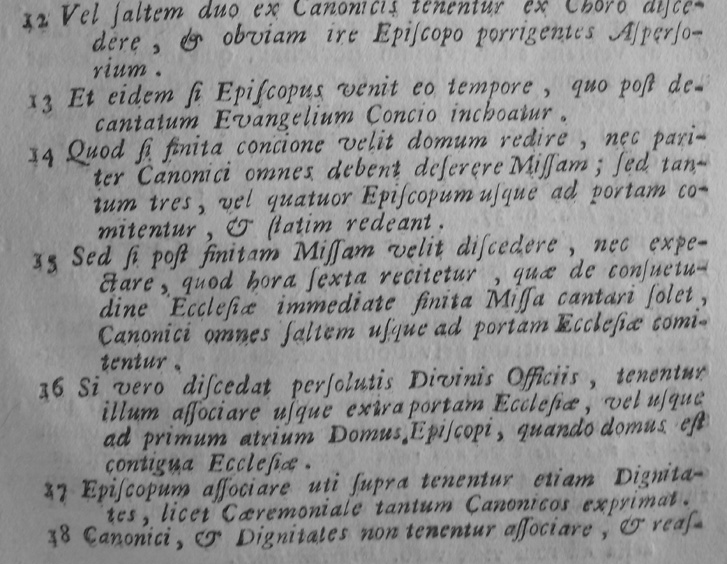 32 Vel ſaltem duo ex Canonicis tenentur ex Choro diſce-
dere, & obviam ire Epiſcopo porrigentes Aſperſo-
rium.
33 Et eidem ſi Epiſcopus venit eo tempore, quo poſt de-
cantatum Evangelium Concio inchoatur.
34 Quod ſi finita concione velit domum redire, nec pari-
ter Canonici omnes debent deſerere Miſſam; ſed tan-
tum tres, vel quatuor Epiſcopum uſque ad portam co-
mitentur, & ſtatim redeant.
35 Sed ſi poſt finitam Miſſam velit diſcedere, nec expe-
ctare, quod hora ſexta recitetur, quæ de conſuetu-
dine Eccleſiæ immediate finita Miſſa cantari ſolet,
Canonici omnes ſaltem uſque ad portam Eccleſiæ comi-
tentur.
36 Si vero diſcedat perſolutis Divinis Officiis, tenentur
illum aſſociare uſque extra portam Eccleſiæ, vel uſque
ad primum atrium Domus Epiſcopi, quando domus eſt
contigua Eccleſiæ.
37 Epiſcopum aſſociare uti ſupra tenentur etiam Dignita-
tes, licet Cæremoniale tantum Canonicos exprimat.
38 Canonici, & Dignitates non tenentur aſſociare, & reaſ-